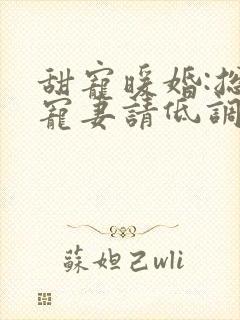 甜寵暖婚:
寵妻請低調
蘇妲己wli